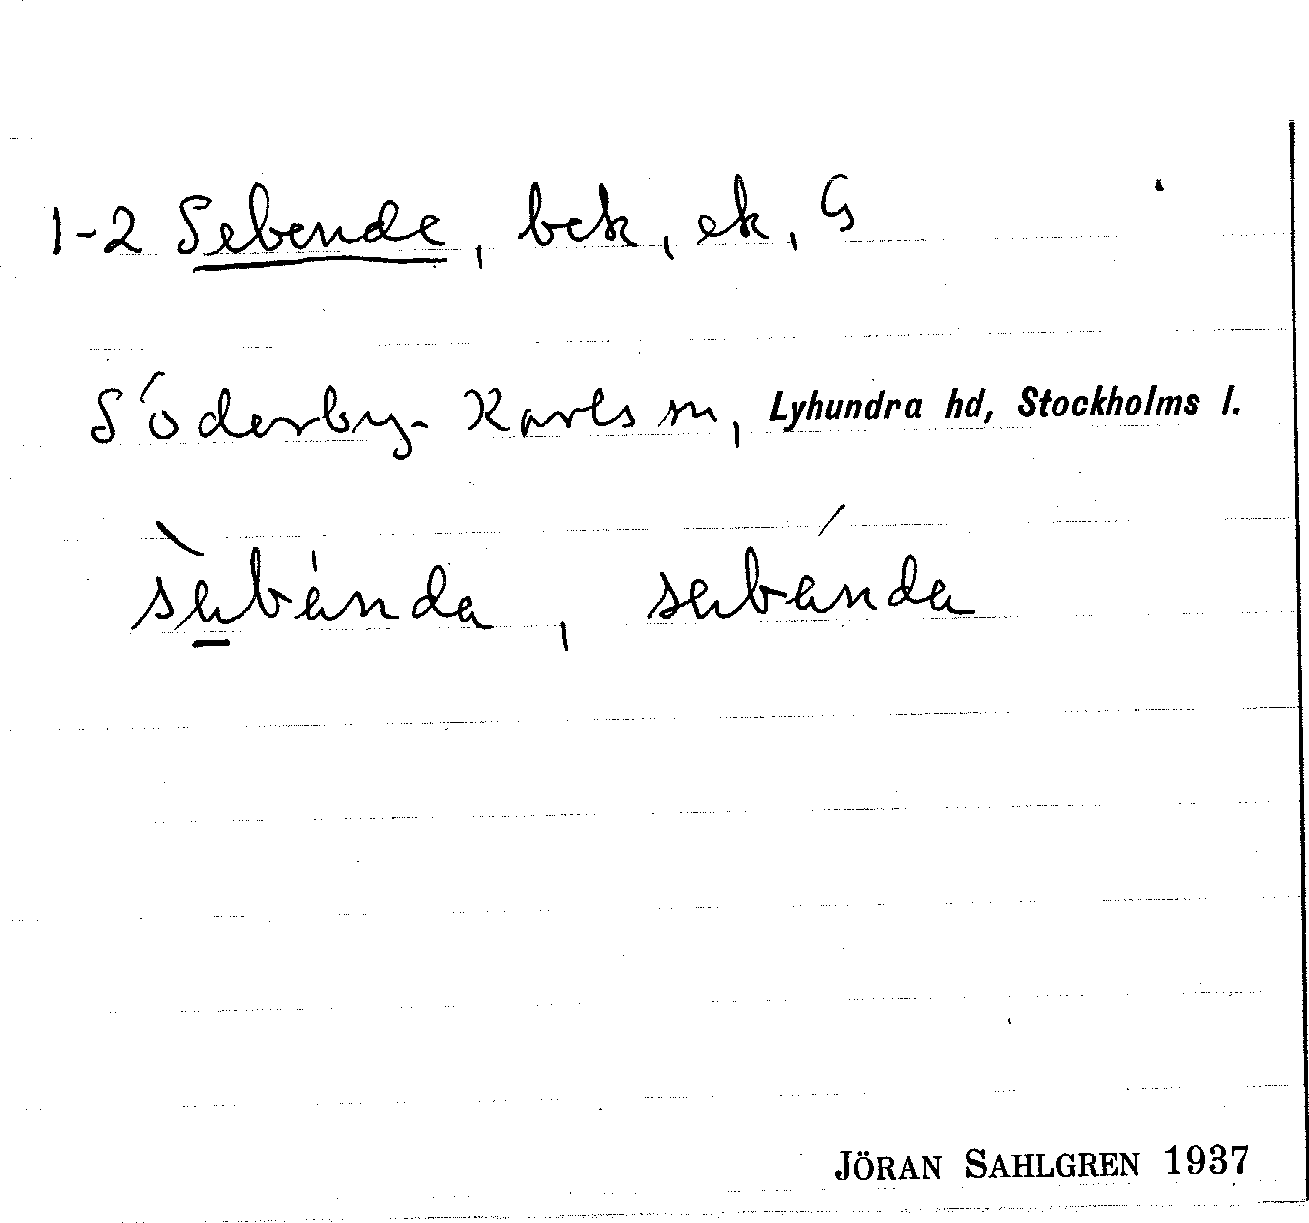 1-2 Sebende, bek, ek, G
Söderby-Karls sn, Lyhundra hd, Stockholms l.
sàbánda, sabánda
JÖRAN SAHLGREN 1937